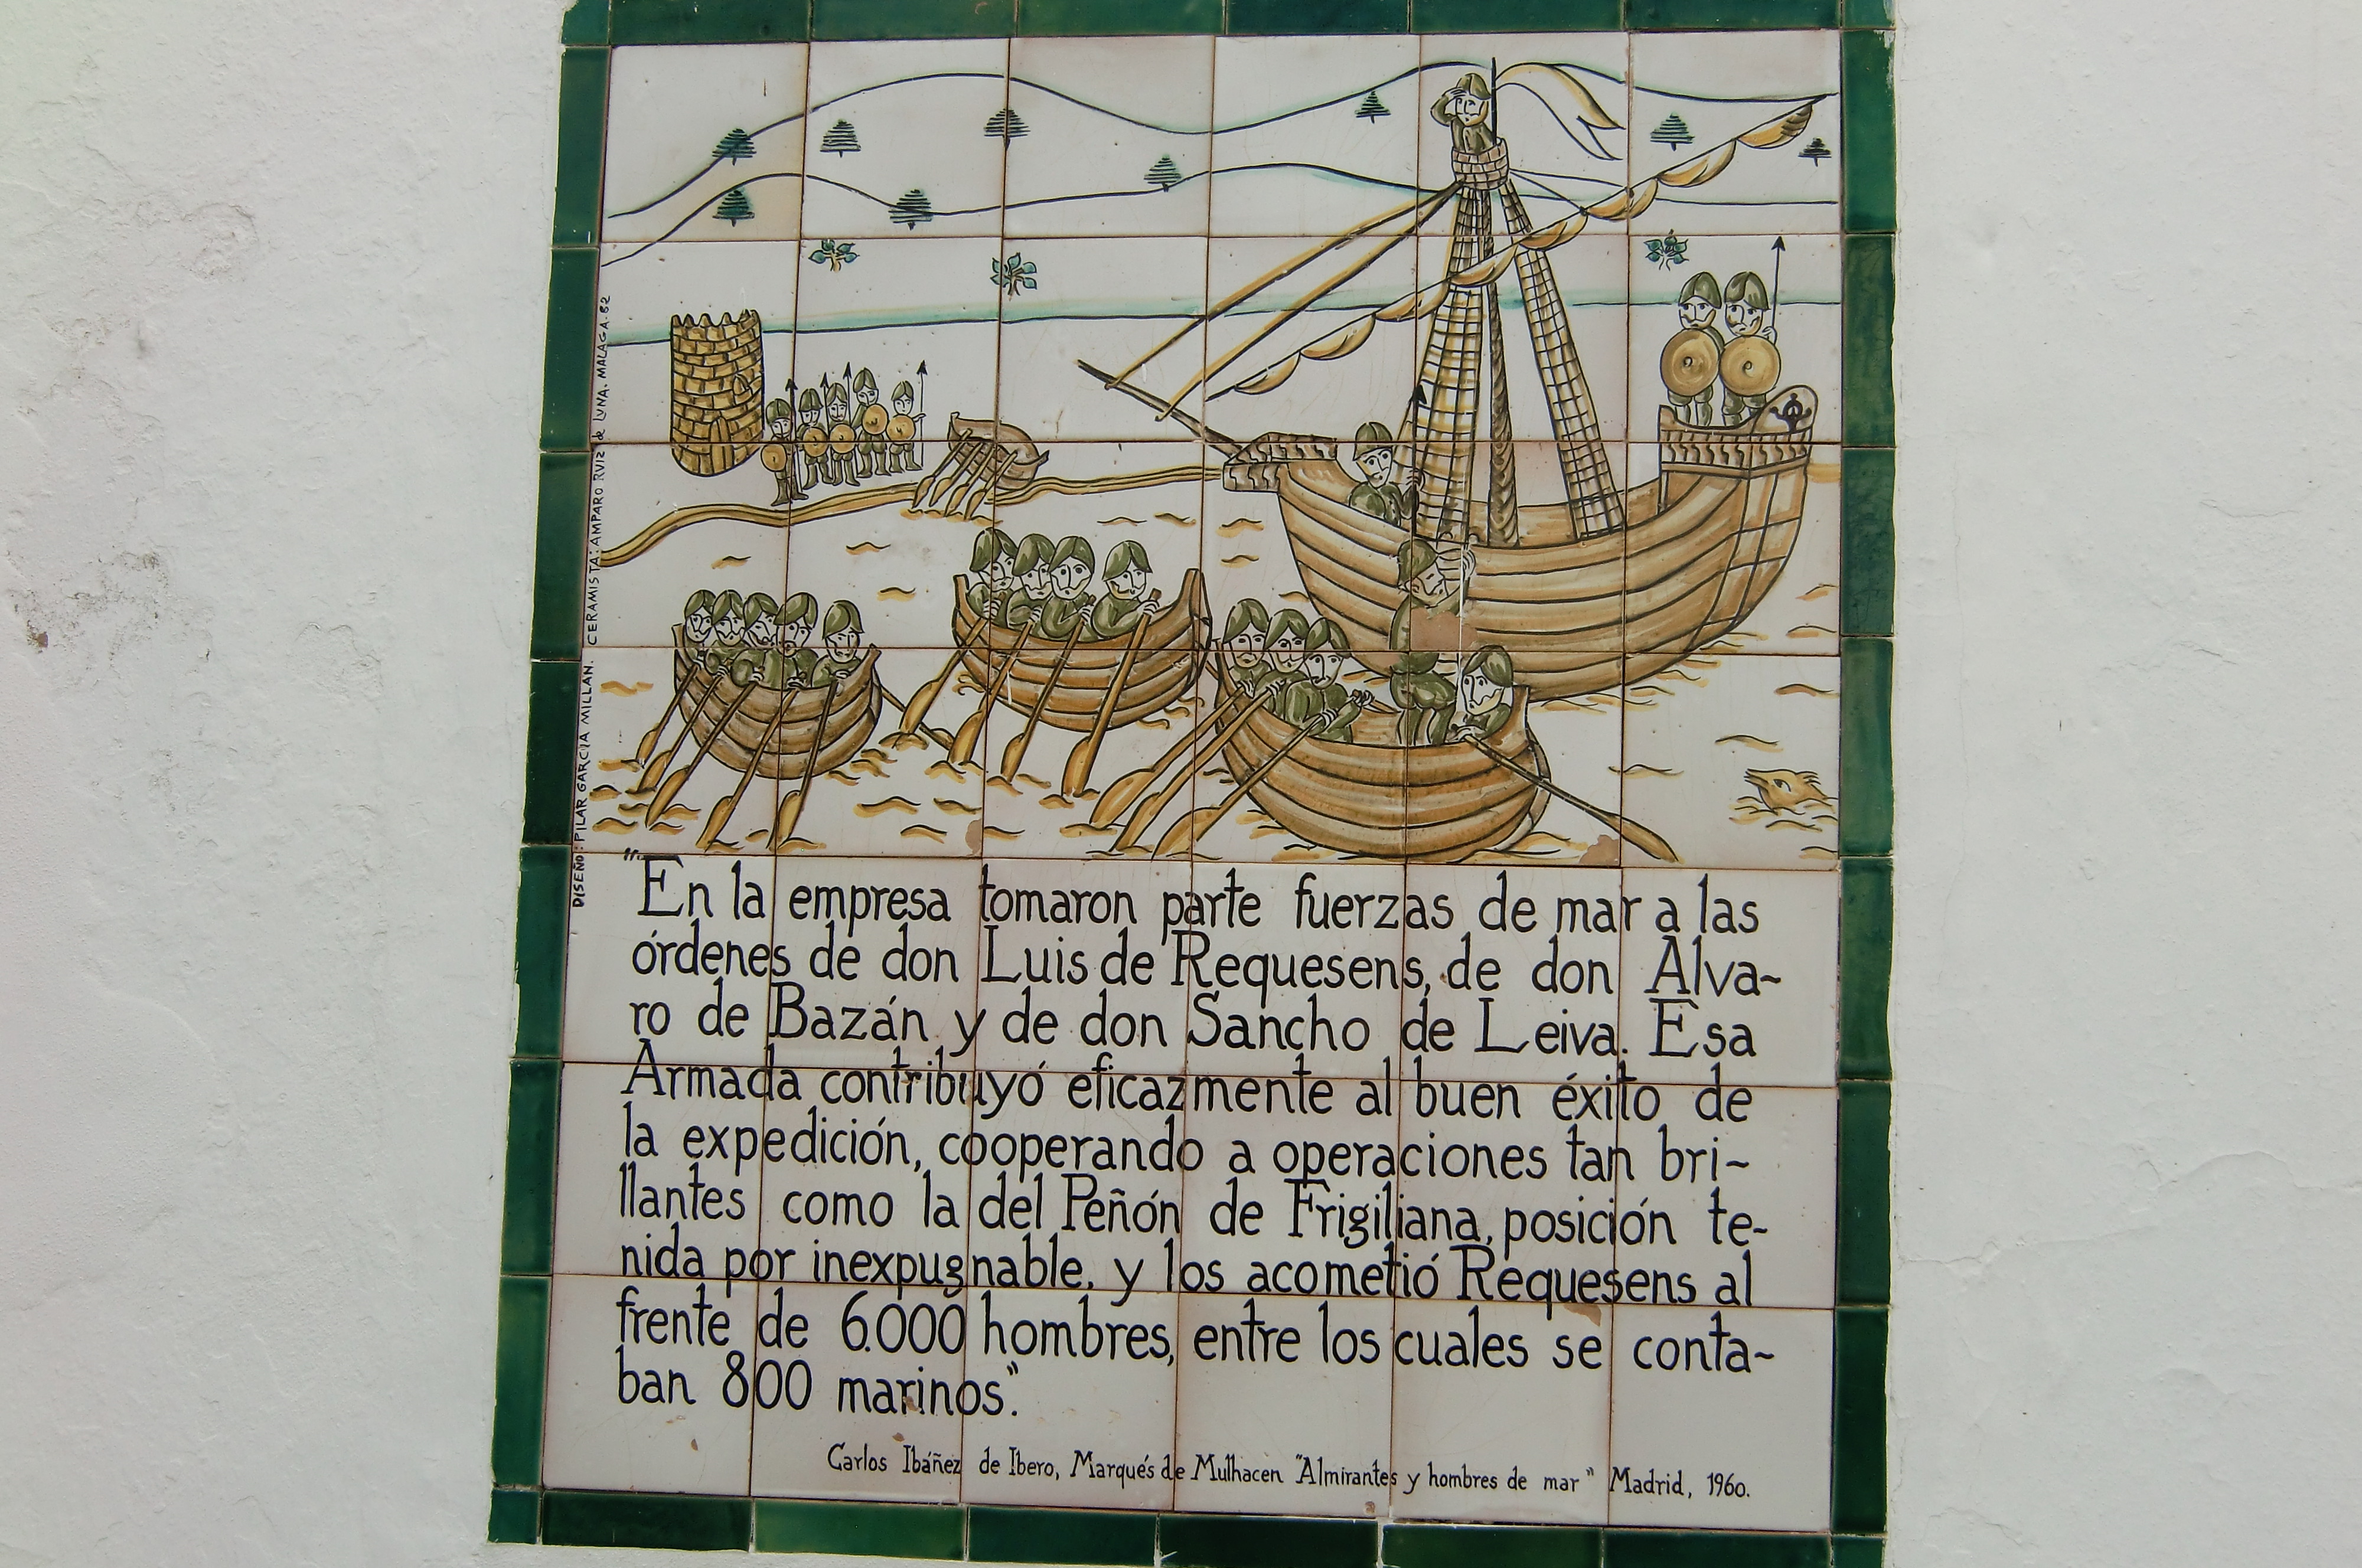 DISEÑO: PILAR GARCIA MILLAN. CERAMISTA: AMPARO RUIZ de LUNA. MALAGA. 82
"En la empresa tomaron parte fuerzas de mar a las
órdenes de don Luis de Requesens, de don Alva~
ro de Bazán y de don Sancho de Leiva. Esa
Armada contribuyó eficazmente al buen éxito de
la expedición, cooperando a operaciones tan bri~
llantes como la del Peñón de Frigiliana, posición te~
nida por inexpugnable, y los acometió Requesens al
frente de 6.000 hombres, entre los cuales se conta~
ban 800 marinos".
Carlos Ibáñez de Ibero, Marqués de Mulhacen "Almirantes y hombres de mar" Madrid, 1960.